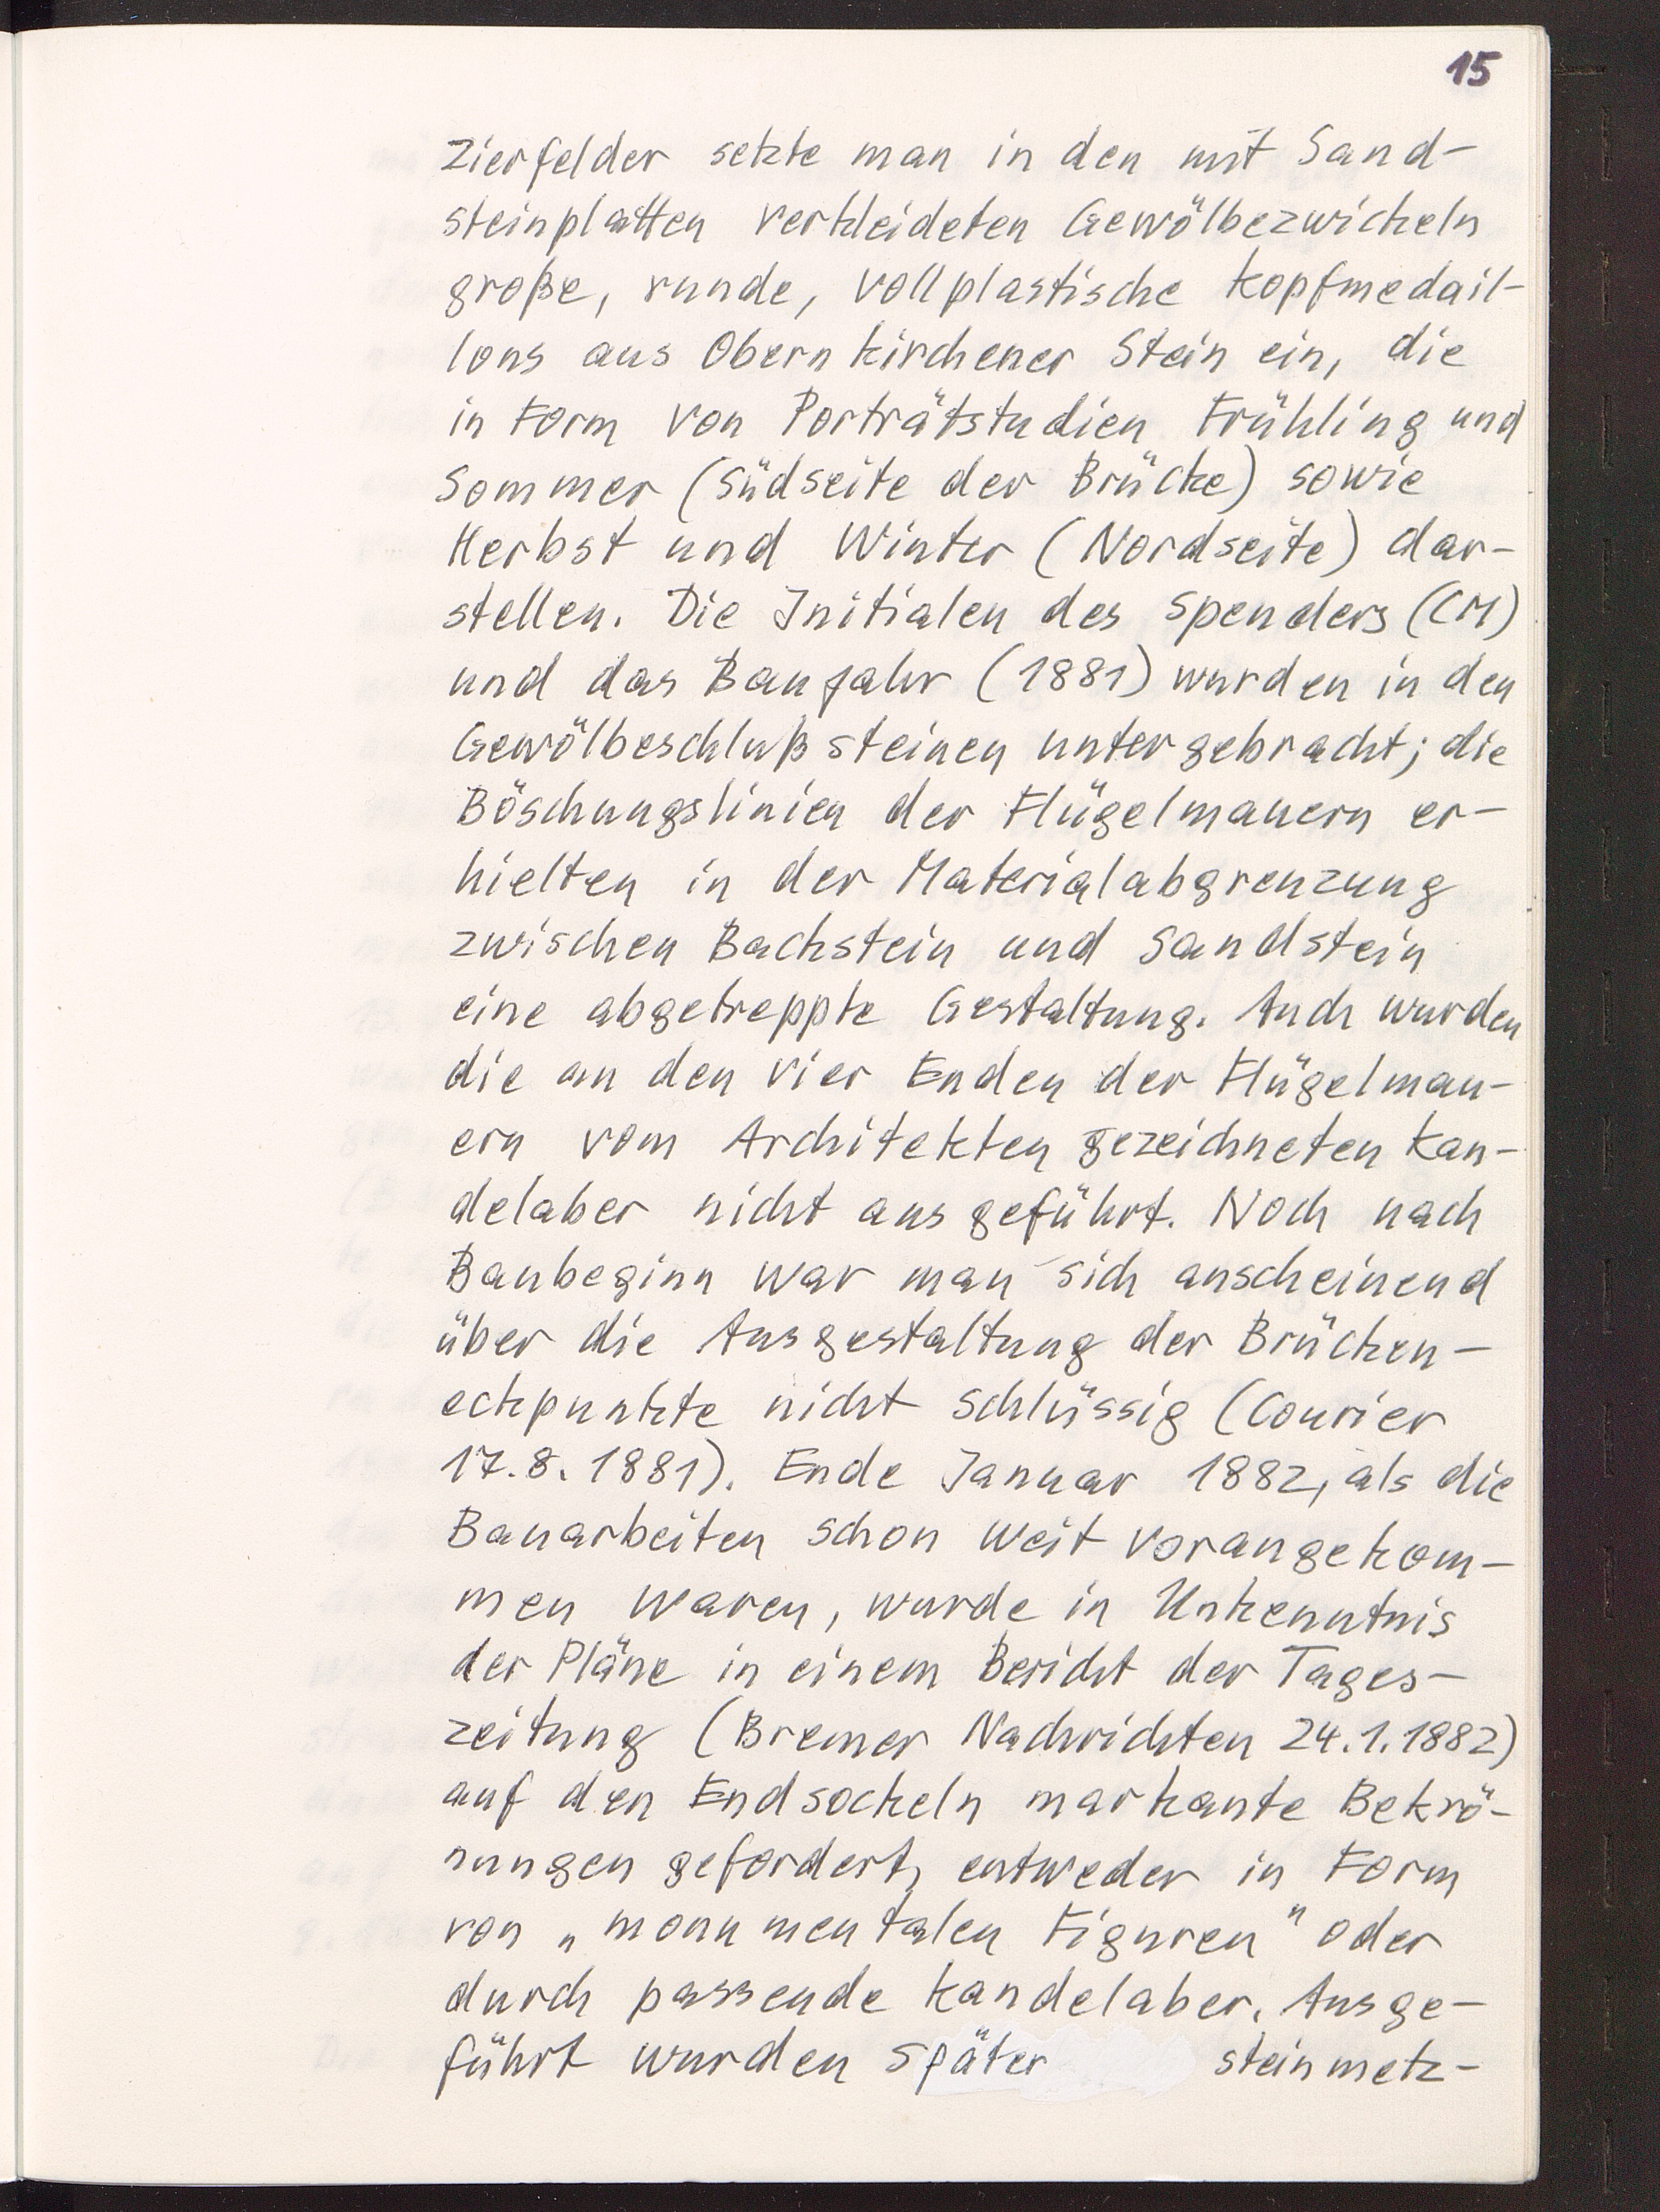 15
Zierfelder setzte man in den mit Sand-
steinplatten verkleideten Gewölbezwickeln
große, runde, vollplastische Kopfmedail-
lons aus Obernkirchener Stein ein, die
in Form von Porträtstudien Frühling und
Sommer (Südseite der Brücke) sowie
Herbst und Winter (Nordseite) dar-
stellen. Die Initialen des Spenders (CM)
und das Baujahr (1881) wurden in den
Gewölbeschlußsteinen untergebracht; die
Böschungslinien der Flügelmauern er-
hielten in der Materialabgrenzung
zwischen Backstein und Sandstein
eine abgetreppte Gestaltung. Auch wurden
die an den vier Enden der Flügelmau-
ern vom Architekten gezeichneten Kan-
delaber nicht ausgeführt. Noch nach
Baubeginn war man sich anscheinend
über die Ausgestaltung der Brücken-
eckpunkte nicht schlüssig (Courier
17.8.1881). Ende Januar 1882, als die
Bauarbeiten schon weit vorangekom-
men waren, wurde in Unkenntnis
der Pläne in einem Bericht der Tages-
zeitung (Bremer Nachrichten 24.1.1882)
auf den Endsockeln markante Bekrö-
nungen gefordert, entweder in Form
von „monumentalen Figuren" oder
durch passende Kandelaber. Ausge-
führt wurden später steinmetz-